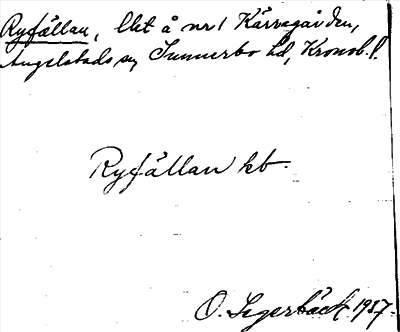 Ryfällan, lht å nr 1 Kärragården,
Angelstads sn, Sunnerbo hd, Kronob. l.
Ryfällan kb.
O. Segerbäck. 1937.